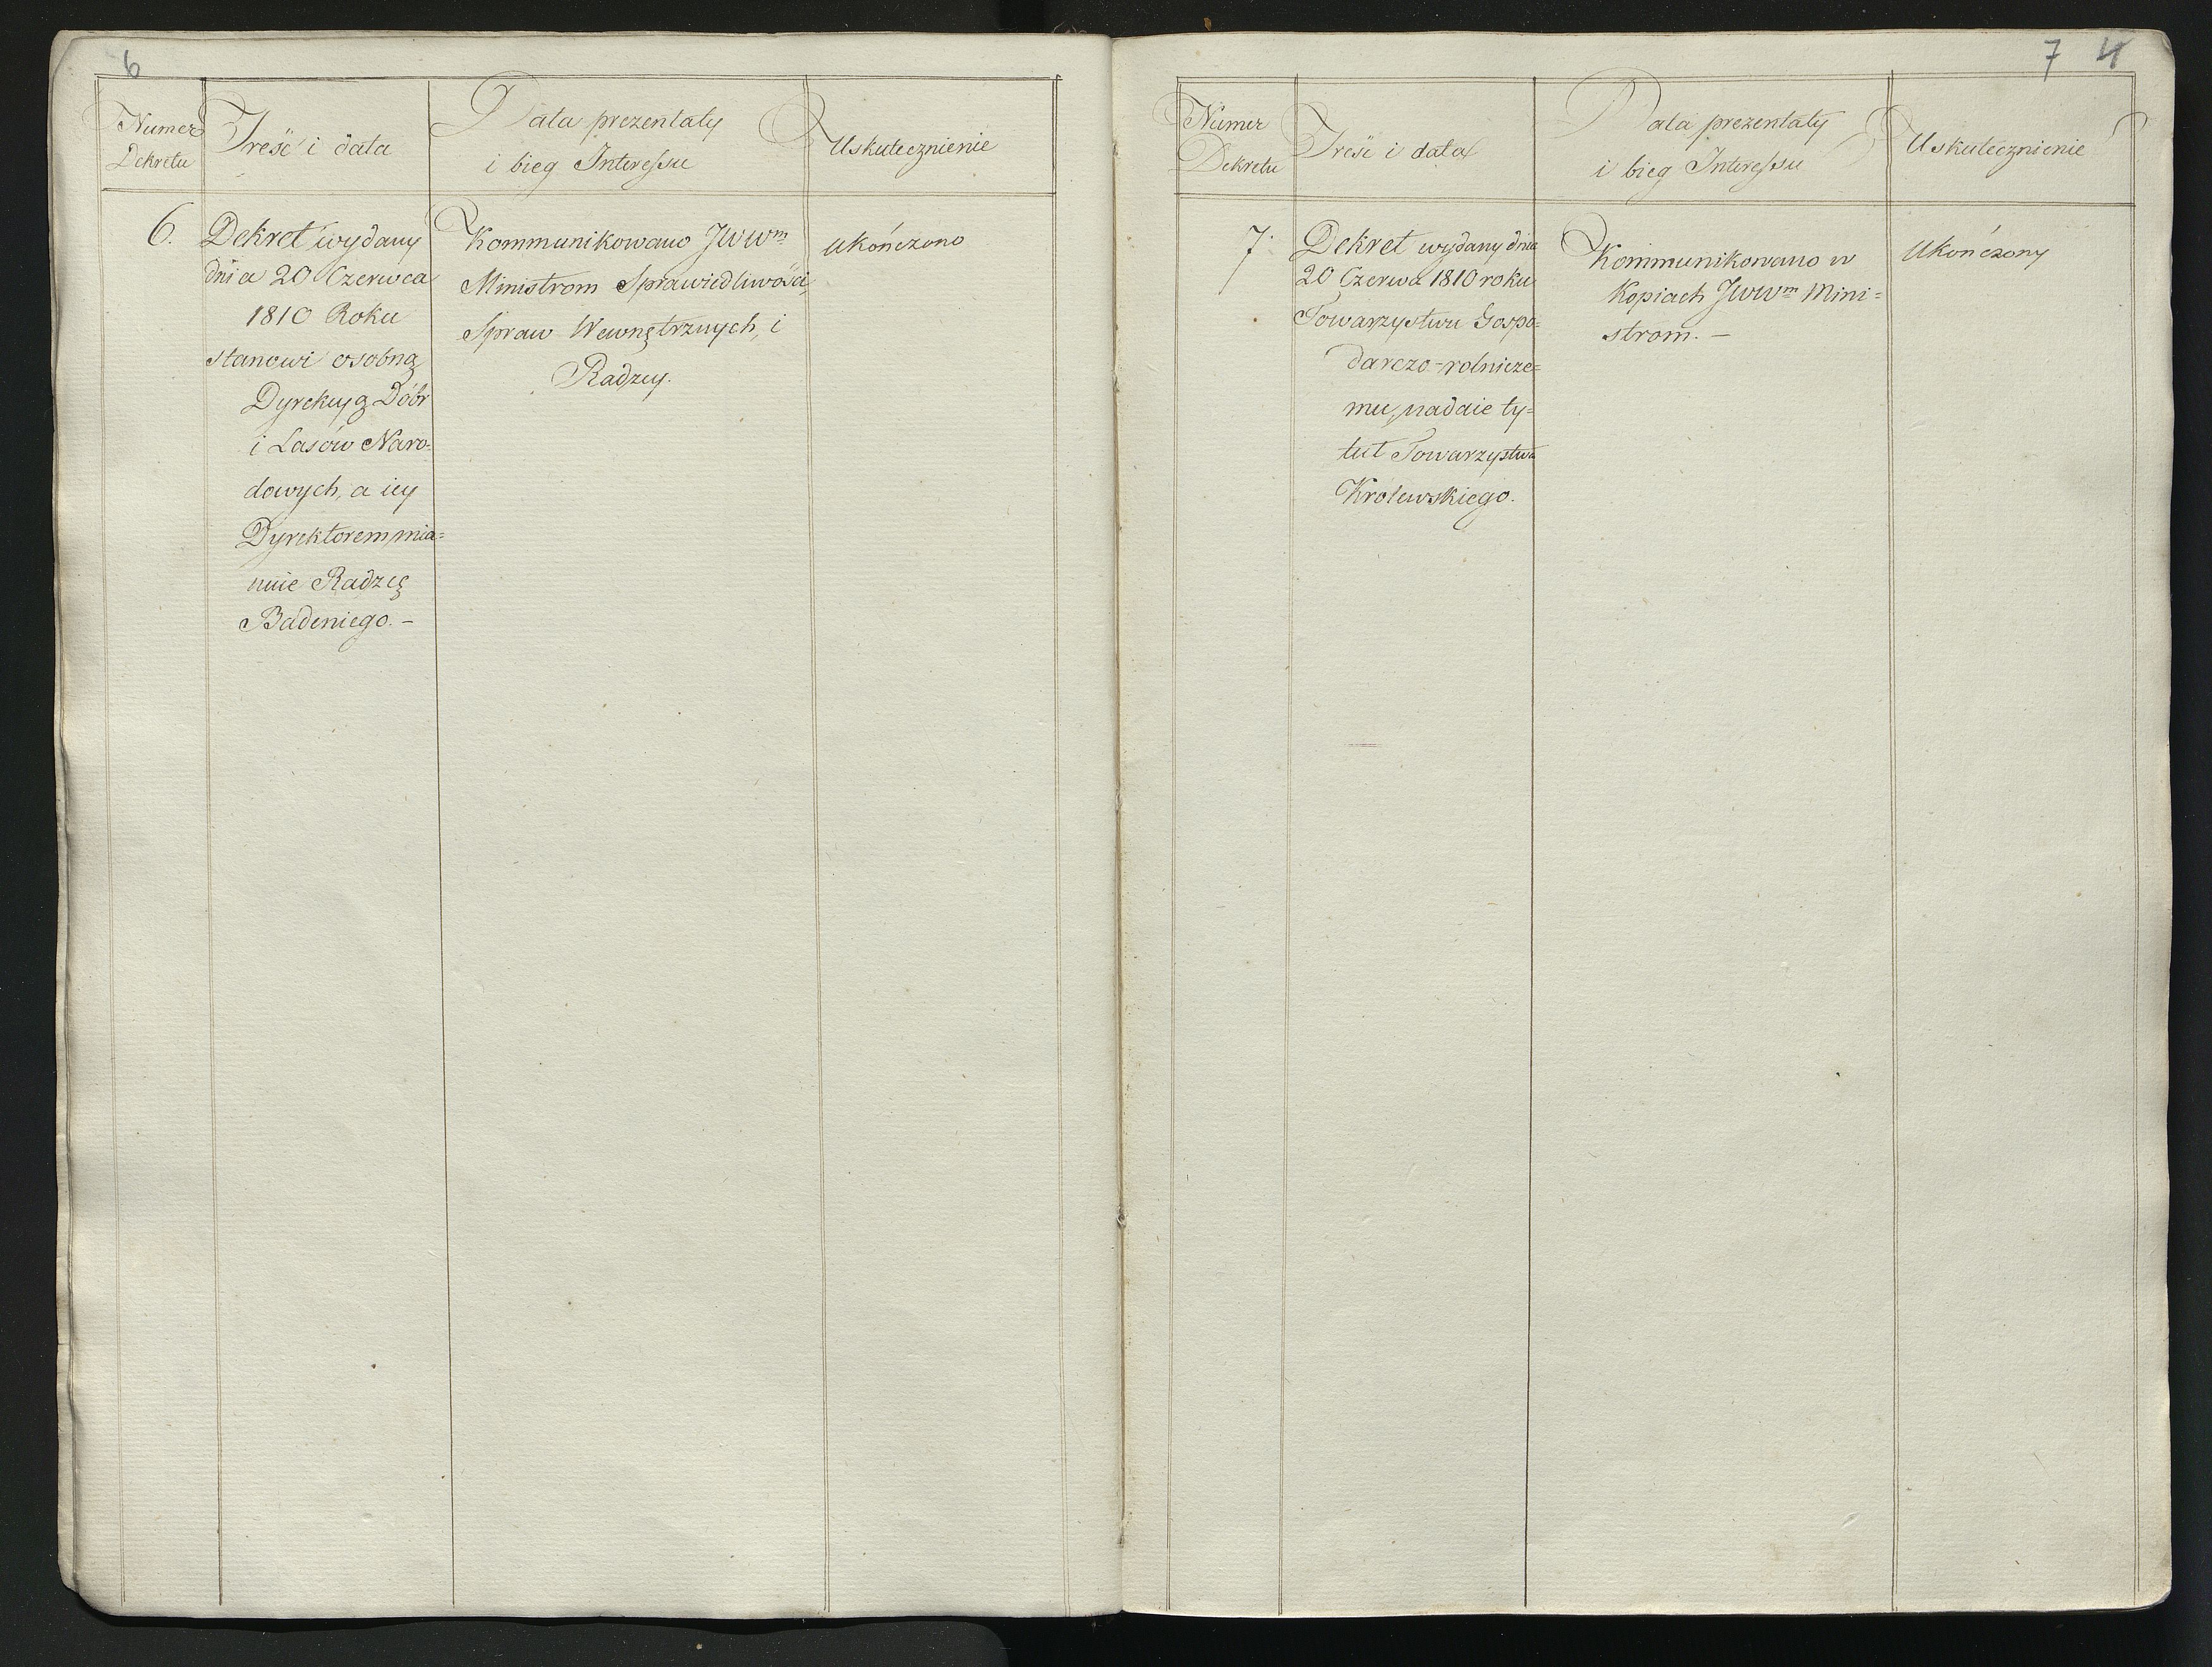 6
Numer
Dekretu
Treść i data
Data prezentaty
i bieg Interessu
Uskutecznienie
6.
Dekret wydany
dnia 20 Czerwca
1810 Roku
stanowi osobną
Dyrekcyą Dóbr
i Lasów Naro=
dowych, a iey
Dyrektorem mia=
nuie Radzcę
Badeniego. –
Kommunikowano JWWm
Ministrom Sprawiedliwości,
Spraw Wewnętrznych, i
Radzcy.
ukończono
7 4
Numer
Dekretu
Treść i data
Data prezentaty
i bieg Interessu
Uskutecznienie
7.
Dekret wydany dnia
20 Czerwca 1810 roku
Towarzystwu Gospo=
darczo-rolnicze=
mu, nadaie ty=
tuł Towarzystwa
Krolewskiego.
Kommunikowano w
Kopiach JWWm Mini=
strom. –
Ukończony